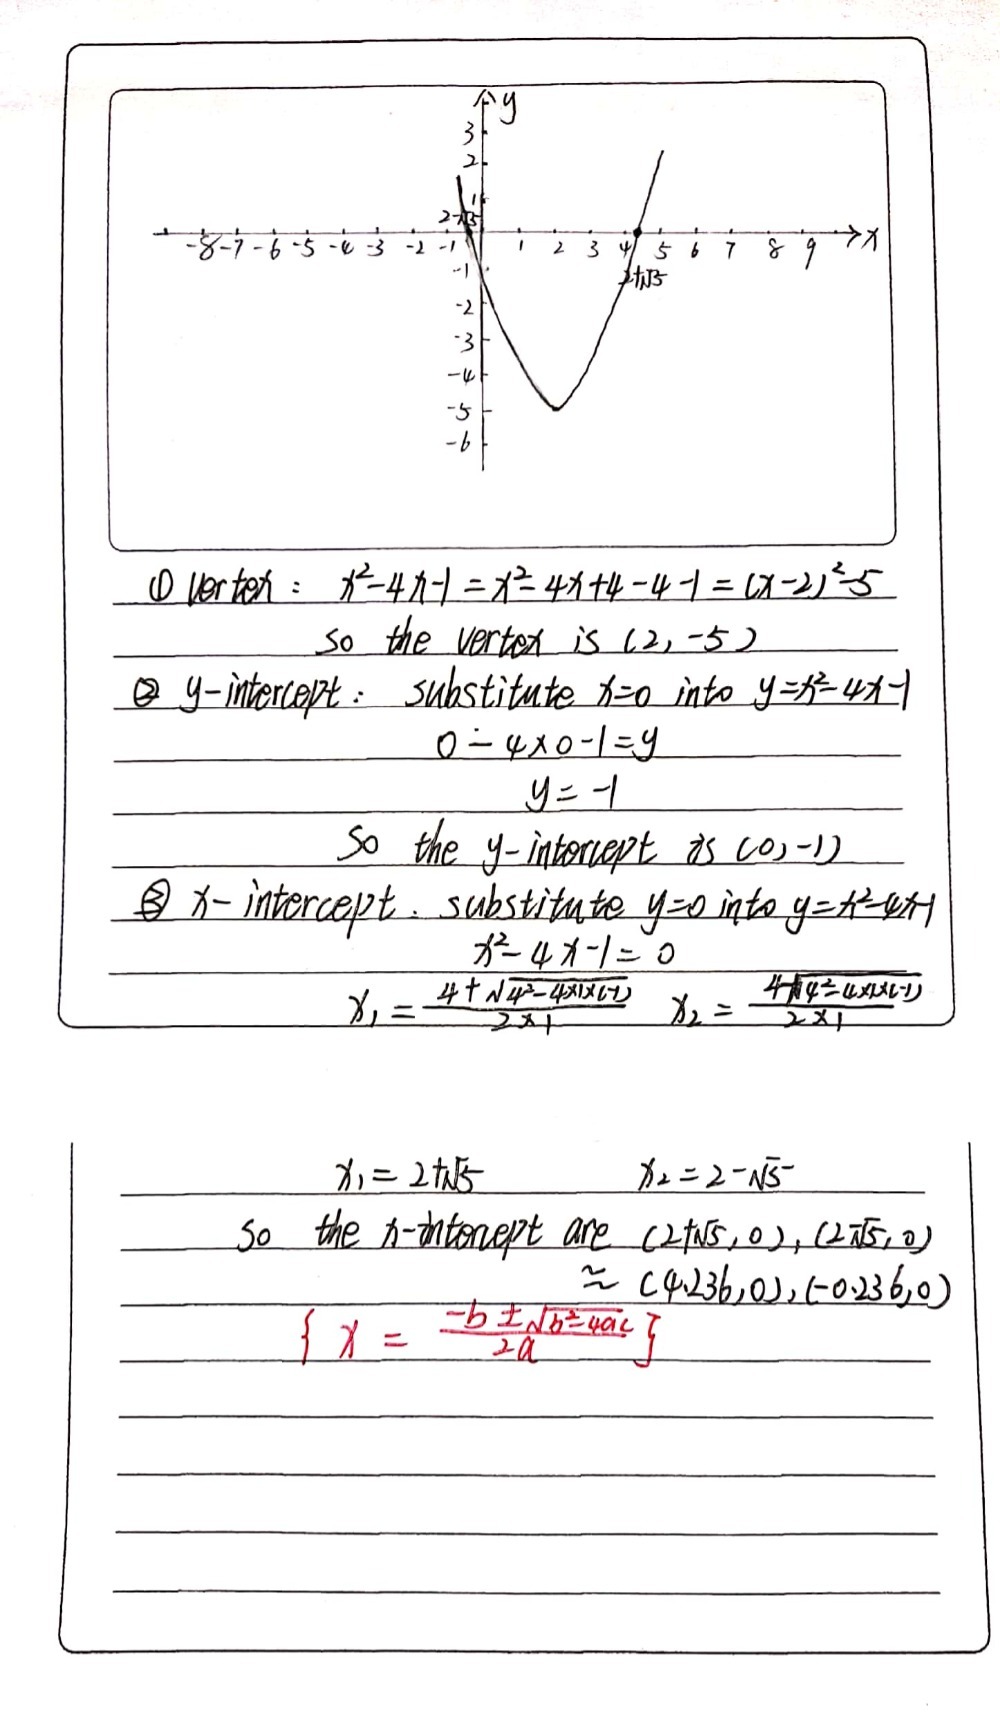 y
3
2
1
2-√5
-8 -7 -6 -5 -4 -3 -2 -1 1 2 3 4 5 6 7 8 9 x
2+√5
-1
-2
-3
-4
-5
-6
① vertex: x²-4x-1=x²-4x+4-4-1=(x-2)²-5
so the vertex is (2,-5)
② y-intercept: substitute x=0 into y=x²-4x-1
0-4×0-1=y
y=-1
So the y-intercept is (0,-1)
③ x-intercept. substitute y=0 into y=x²-4x-1
x²-4x-1=0
x₁=(4+√(4²-4×1×(-1)))/(2×1) x₂=(4-√(4²-4×1×(-1)))/(2×1)
x₁=2+√5 x₂=2-√5
So the x-intercept are (2+√5,0), (2-√5,0)
≈(4.236,0),(-0.236,0)
{x=(-b±√(b²-4ac))/(2a)}